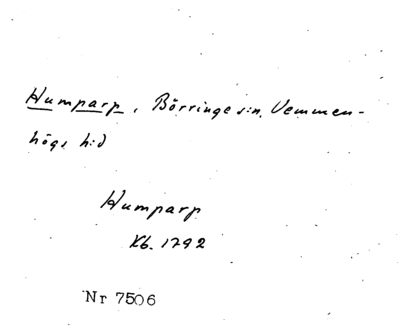 Humparp, Börringe s:n, Vemmen-
högs h:d
Humparp
Kb. 1792
Nr 7506